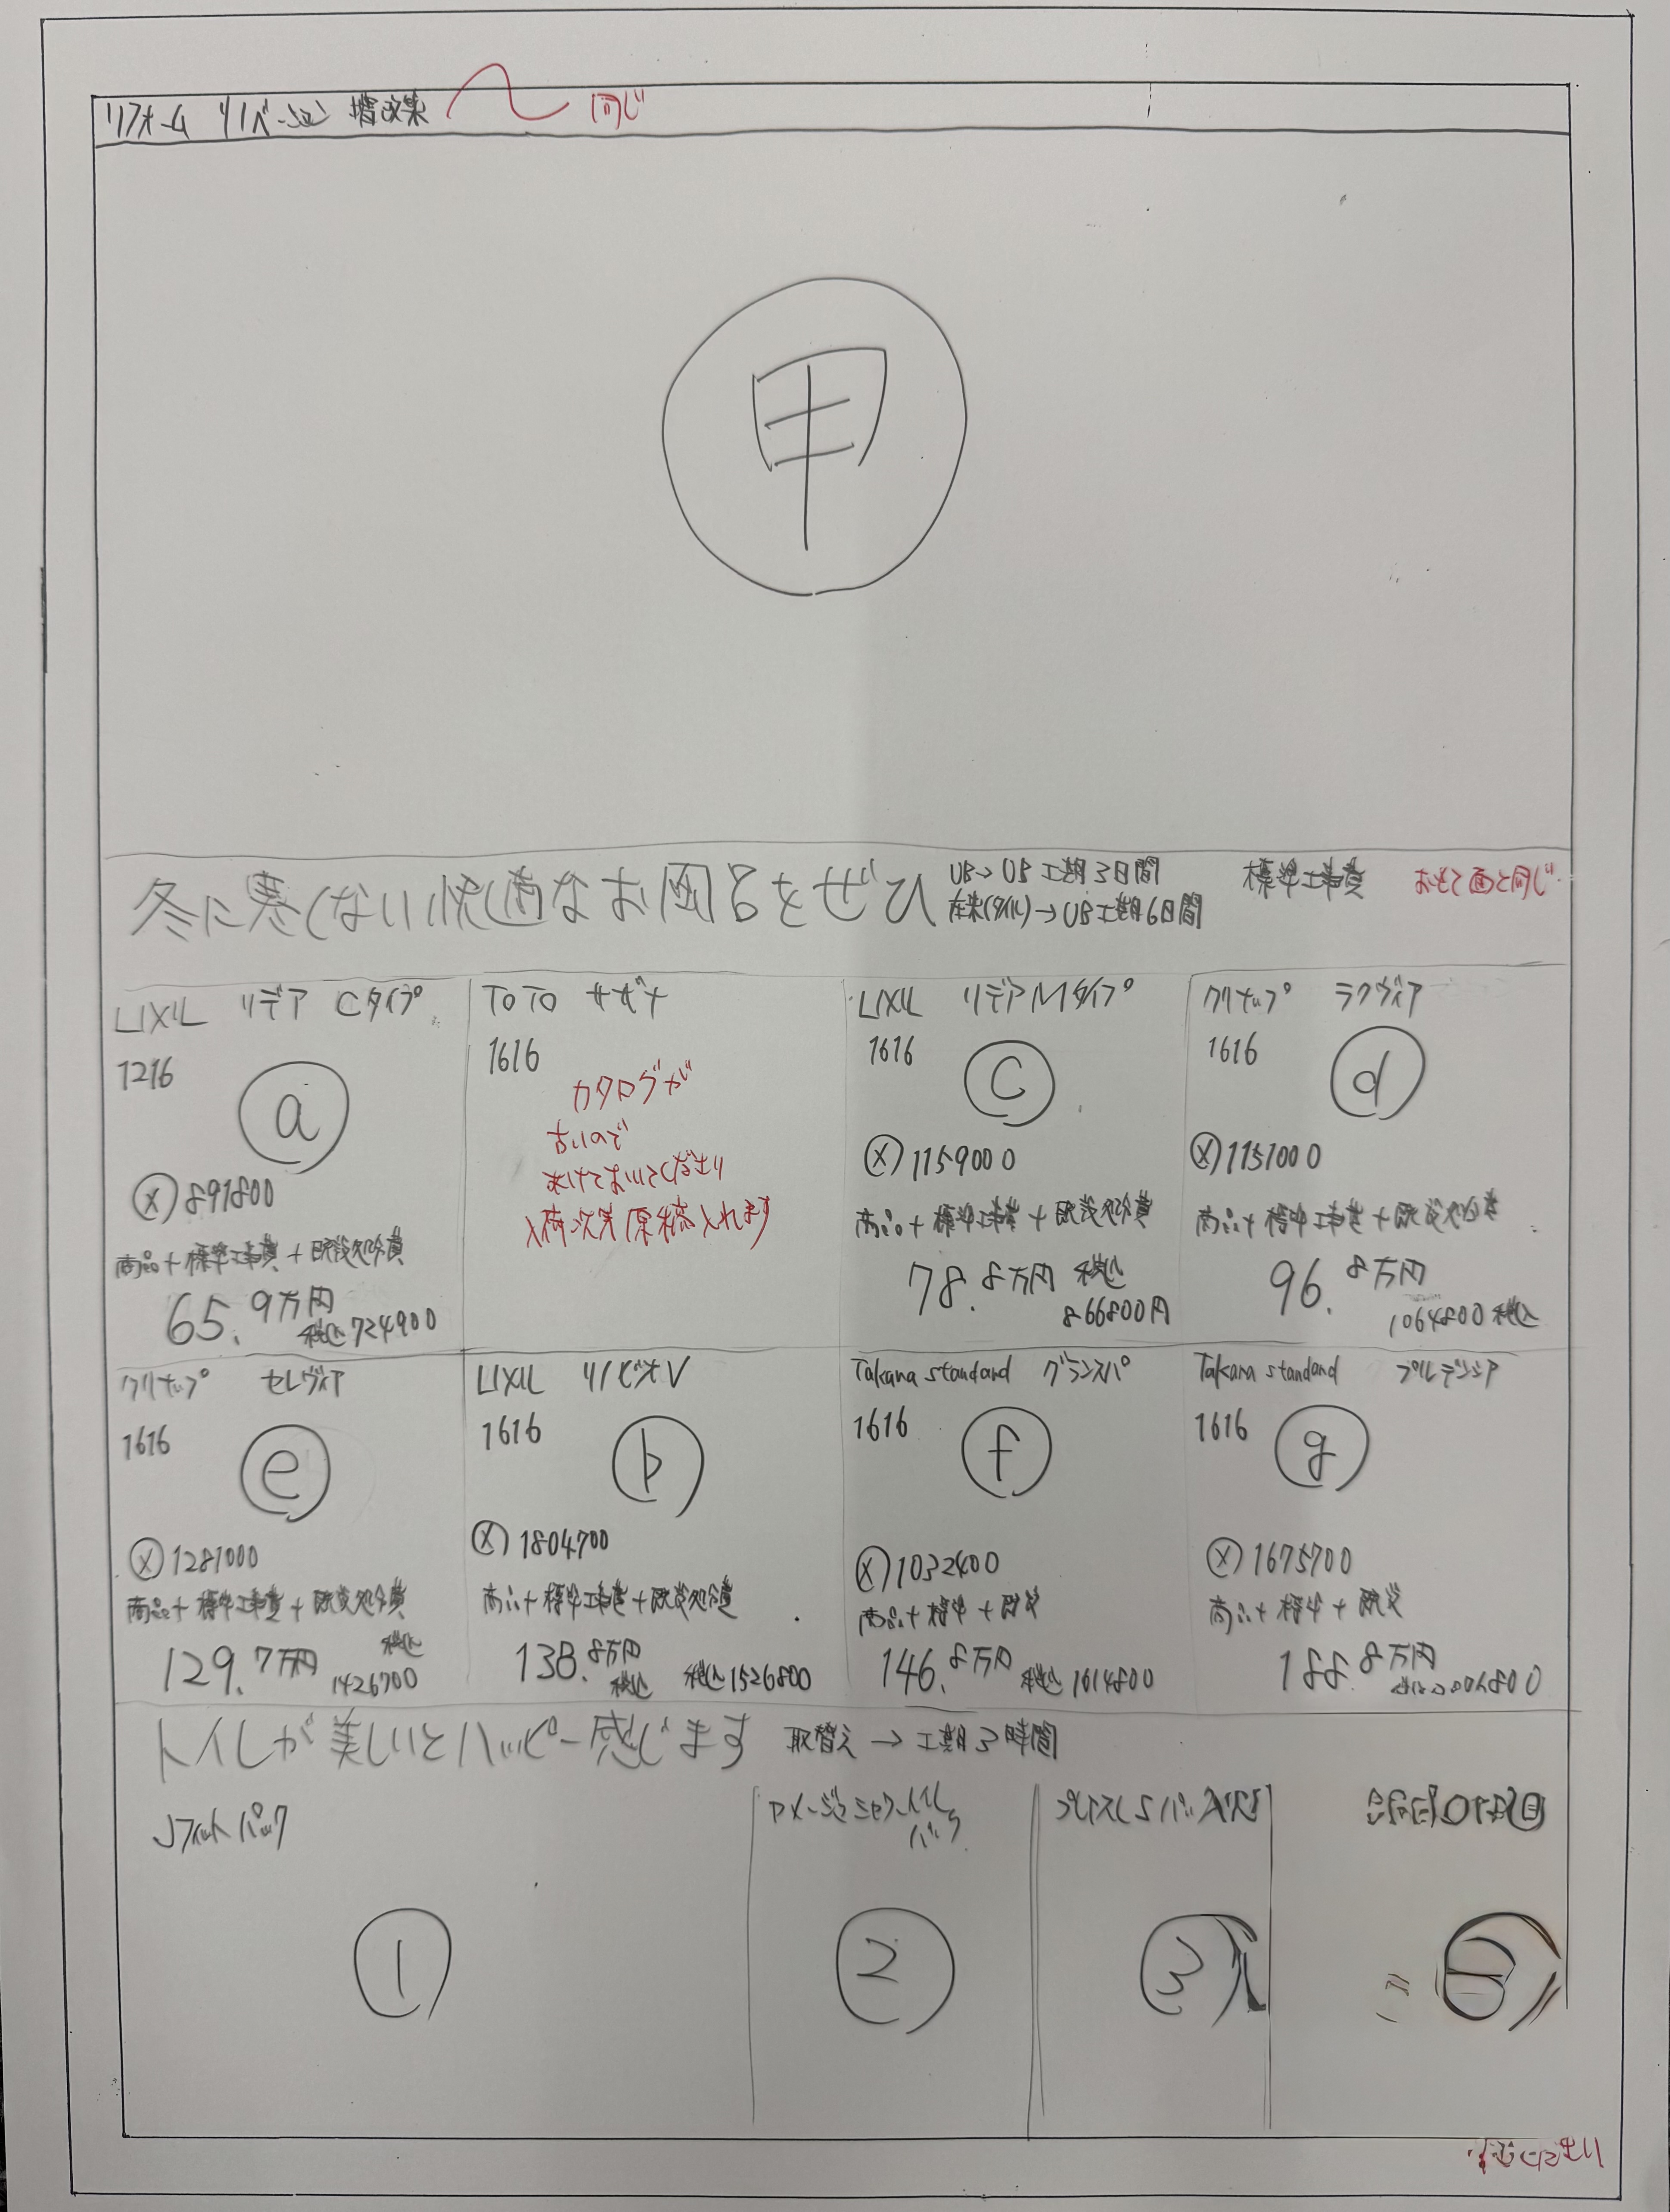 リフォーム リノベーション 増改築 同じ
甲
冬に寒くない快適なお風呂をぜひ
UB→UB 工期3日間
在来(タイル)→UB工期6日間
標準工事費
おもて面と同じ
LIXIL リデア Cタイプ
1216
a
メ 891800
商品+標準工事費+既設処分費
65.9万円
税込724900
TOTO サザナ
1616
カタログが
古いので
あけておいてください
入荷次第原稿入れます
LIXIL リデアMタイプ
1616
c
メ 1159000
商品+標準工事費+既設処分費
78.8万円 税込
866800円
クリナップ ラクヴィア
1616
d
メ 1151000
商品+標準工事費+既設処分費
96.8万円
1064800税込
クリナップ セレヴィア
1616
e
メ 1281000
商品+標準工事費+既設処分費
129.7万円 税込
1426700
LIXIL リノビオV
1616
b
メ 1804700
商品+標準工事費+既設処分費
138.8万円
税込 税込1526800
Takara standard グランスパ
1616
f
メ 1032400
商品+標準+既設
146.8万円 税込1614800
Takara standard プレデンシア
1616
g
メ 1675700
商品+標準+既設
188.8万円
トイレが美しいとハッピー感じます
取替え→工期3時間
Jフィットパック
1
アメージュシャワートイレ
パック
2
3